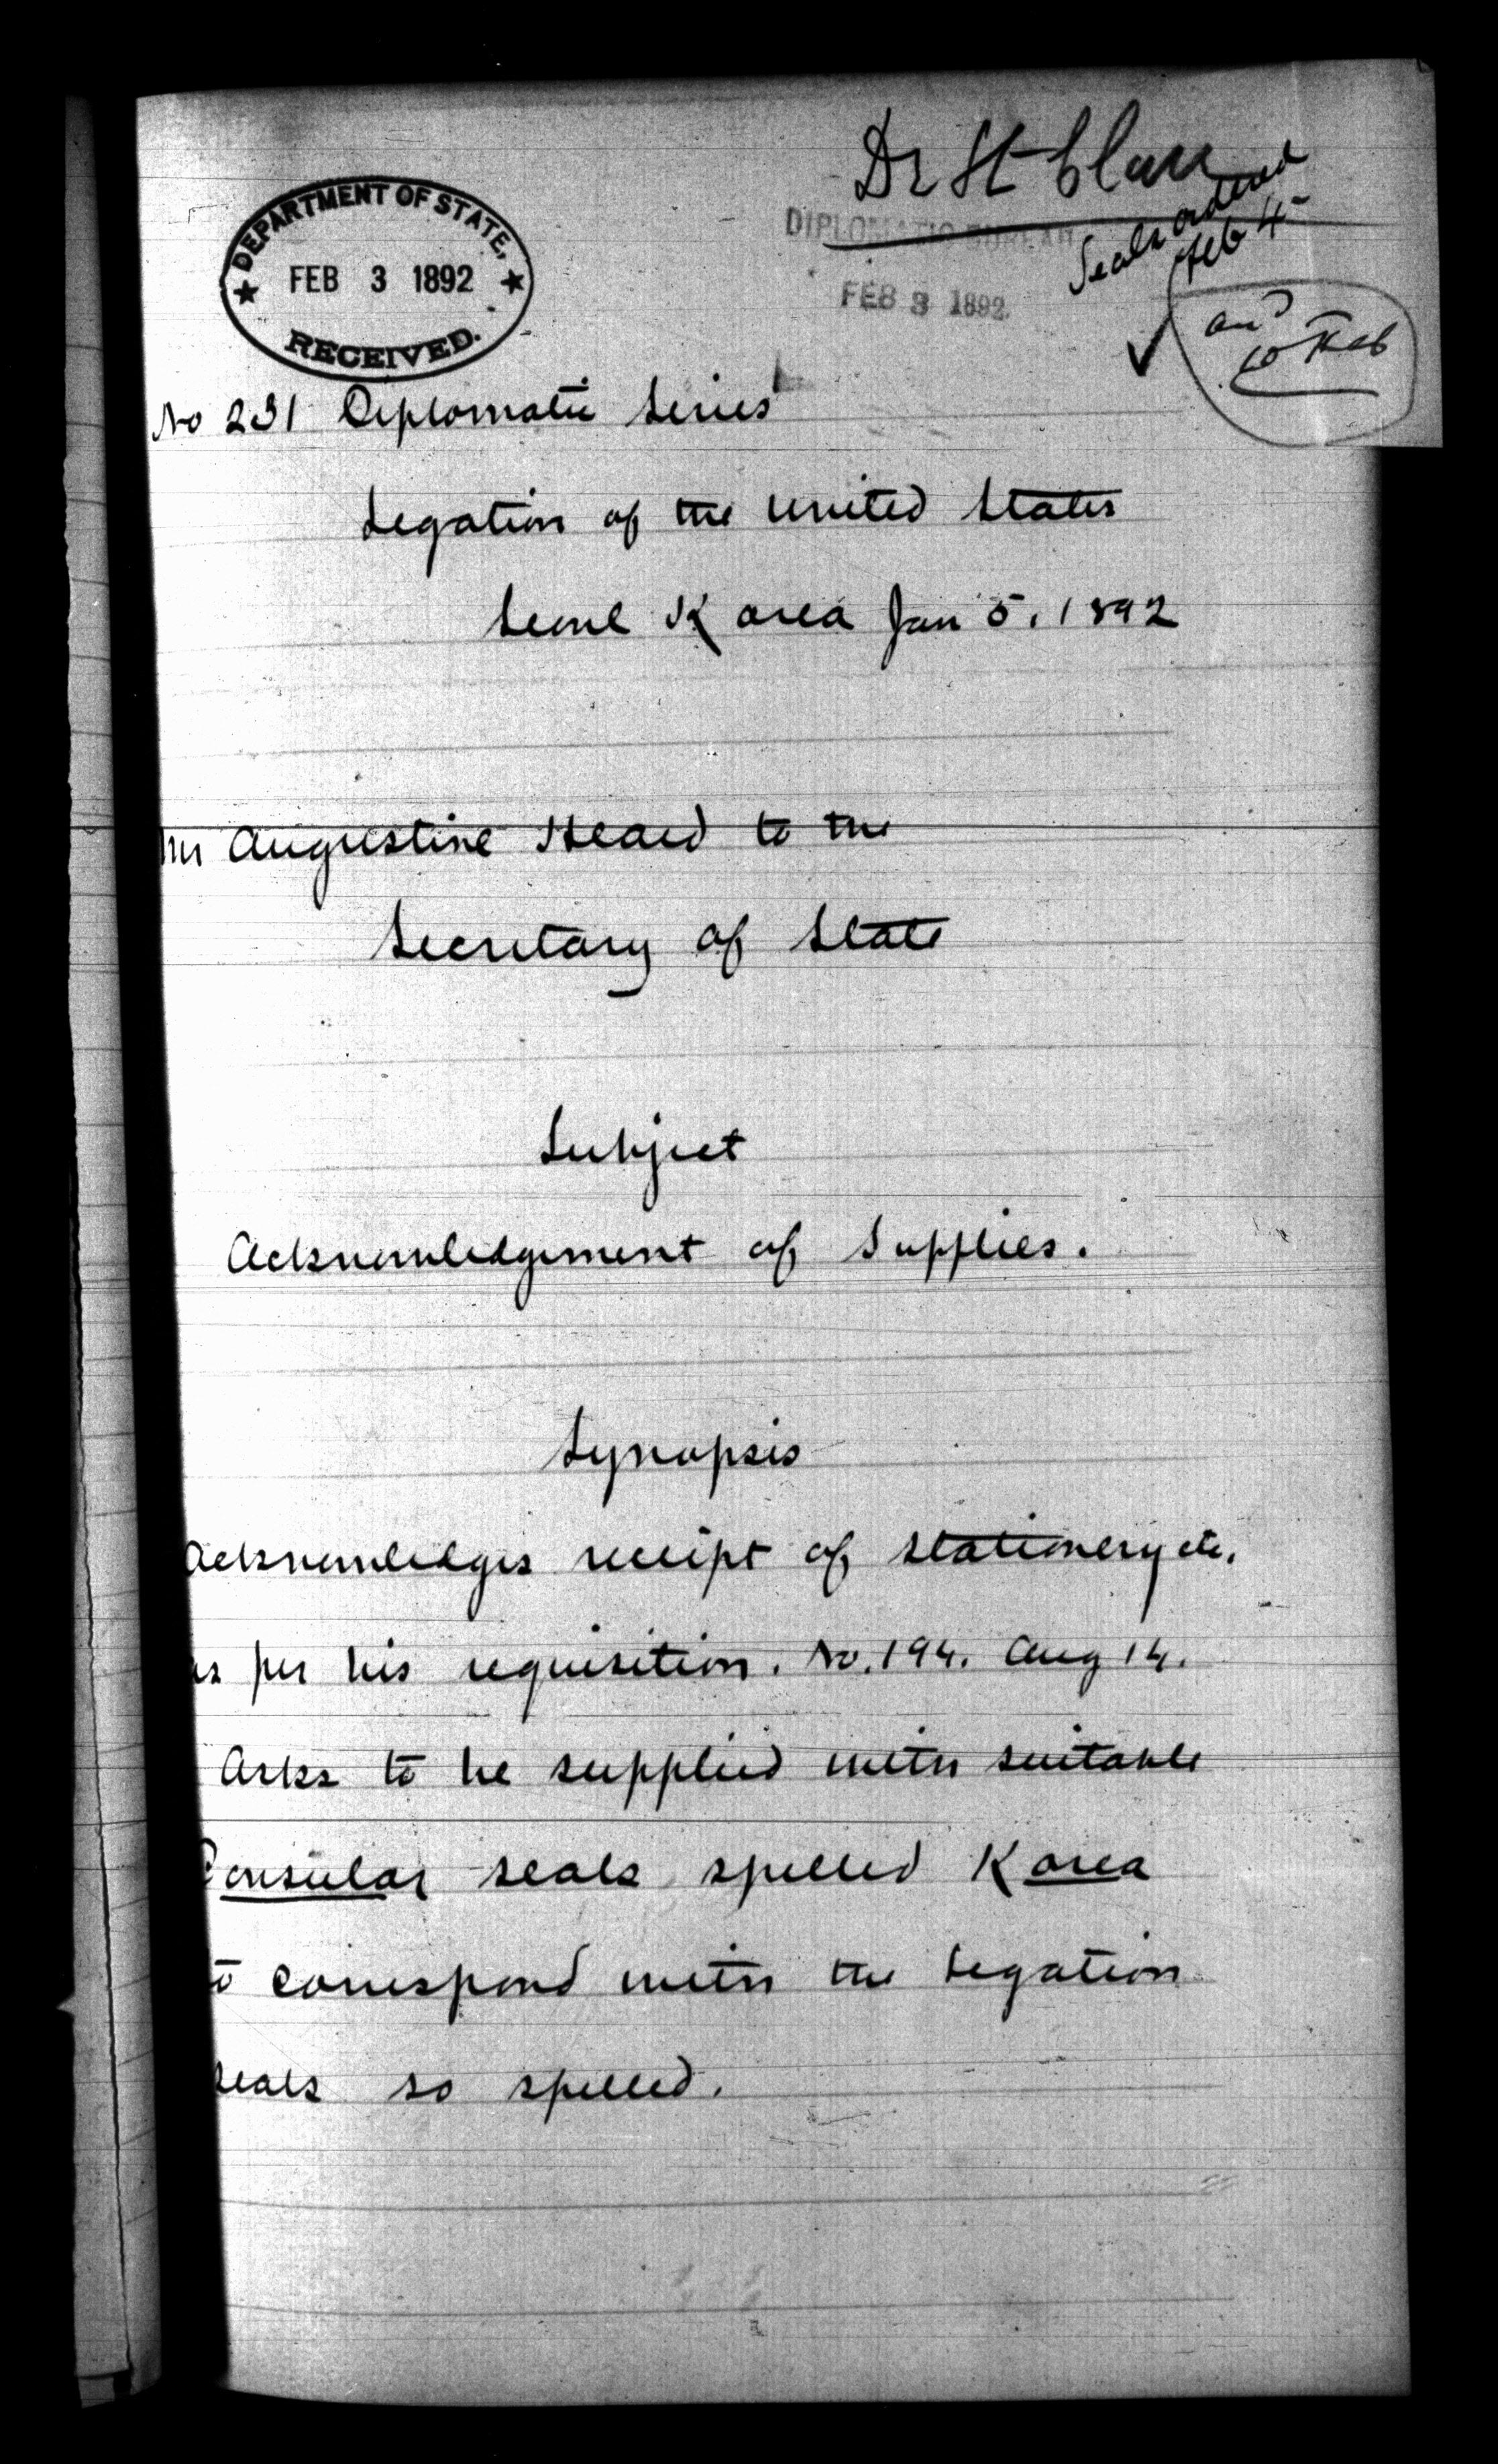 Dr St Clair
Seals ordered
Feb 4
DEPARTMENT OF STATE,
FEB 3 1892
RECEIVED.
DIPLOMATIC BUREAU
FEB 3 1892
ans'd
10 Feb
No 231 Diplomatic Series
Legation of the United States
Seoul Korea Jan 5. 1892
Mr Augustine Heard to the
Secretary of State
Subject
Acknowledgement of Supplies.
Synopsis
Acknowledges receipt of stationery etc.
as per his requisition. No. 194. Aug 14.
Asks to be supplied with suitable
Consular seals spelled Korea
to correspond with the Legation
seals so spelled.